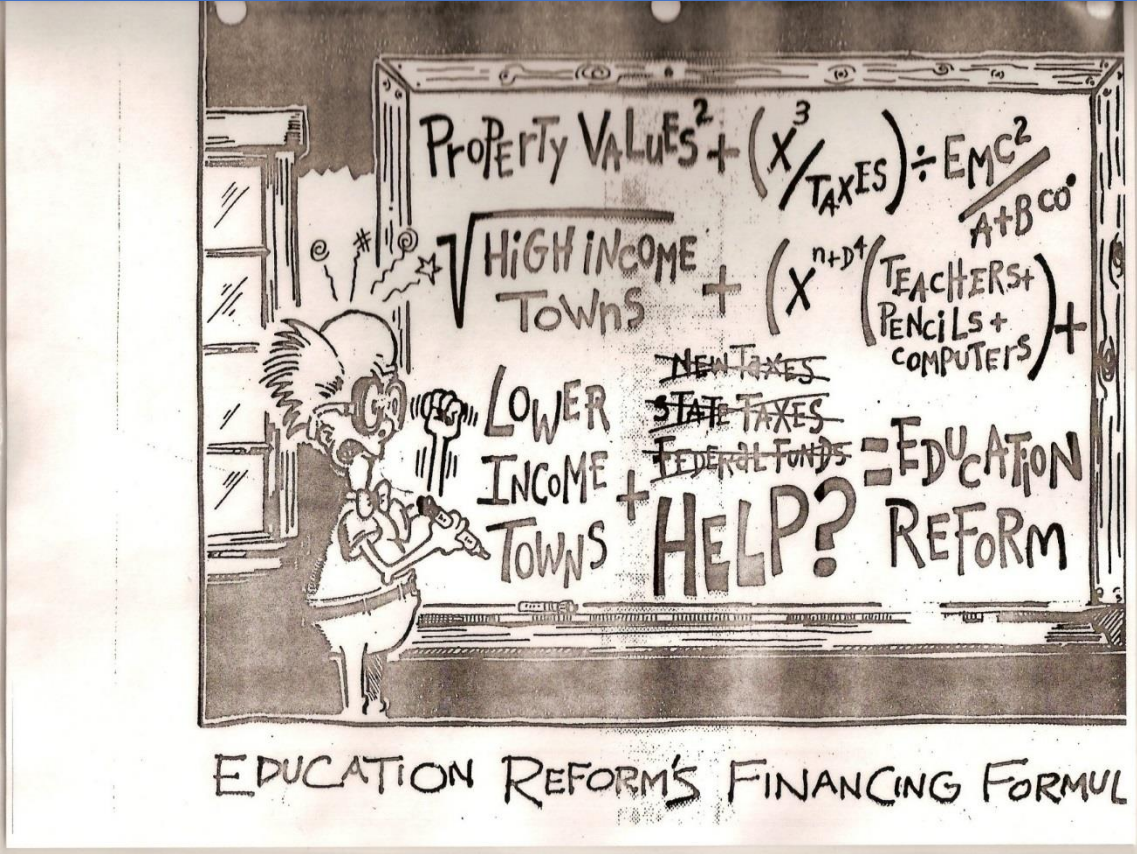 PROPERTY VALUES² + (X³/TAXES) ÷ EMC²/A+B CO°
√HIGH INCOME TOWNS + (X^n+D⁴(TEACHERS+
PENCILS+
COMPUTERS)+
LOWER
INCOME
TOWNS
+
NEW TAXES
STATE TAXES
FEDERAL FUNDS
HELP?
= EDUCATION
REFORM
EDUCATION REFORM'S FINANCING FORMUL